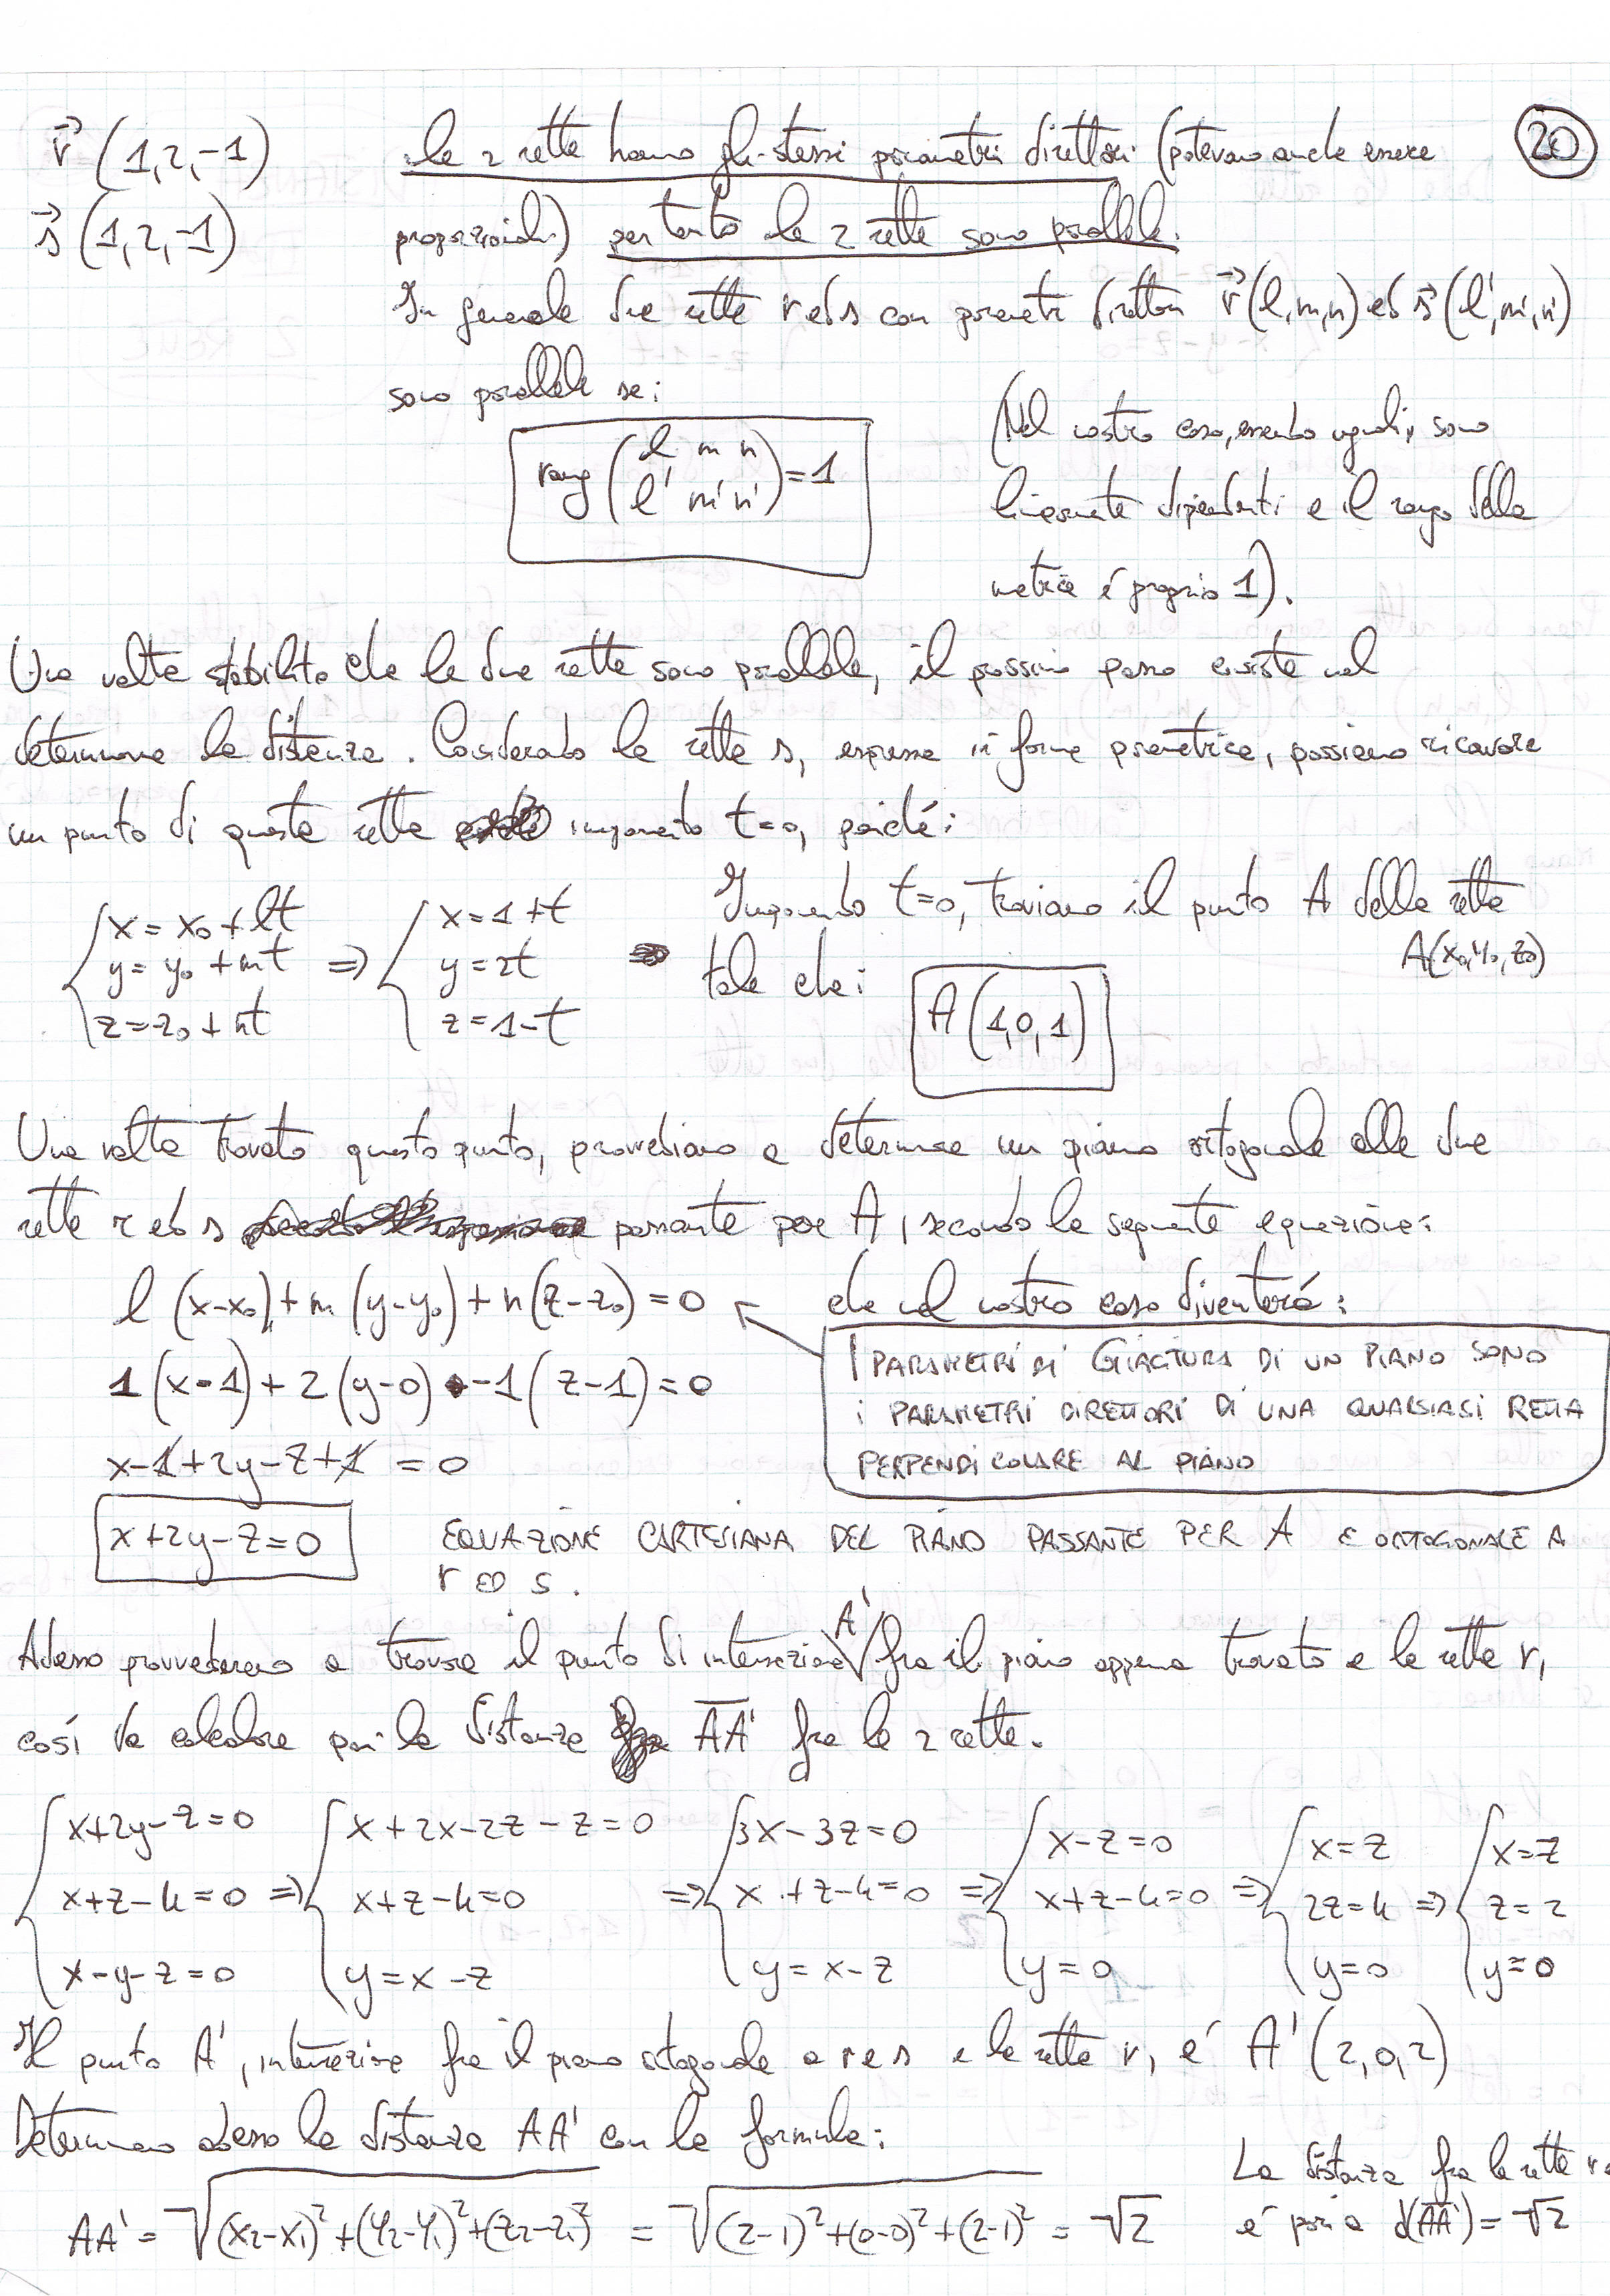 r⃗ (1,2,-1) le 2 rette hanno gli stessi parametri direttori (potevano anche essere 20
s⃗ (1,2,-1) proporzionali) pertanto le 2 rette sono parallele.
In generale due rette r ed s con parametri direttori r⃗(l,m,n) ed s⃗(l',m',n')
sono parallele se:
rang ( l m n
l' m' n' ) = 1
(Nel nostro caso, essendo uguali, sono
linearmente dipendenti e il rango della
matrice é proprio 1).
Una volta stabilito che le due rette sono parallele, il prossimo passo consiste nel
determinare la distanza. Considerando la retta s, espressa in forma parametrica, possiamo ricavare
un punto di questa retta imponendo t=0, poiché:
{ x = x₀ + lt
y = y₀ + mt
z = z₀ + nt
⇒ { x = 1+t
y = 2t
z = 1-t
Imponendo t=0, troviamo il punto A della retta
A(x₀,y₀,z₀)
tale che: A(1,0,1)
Una volta trovato questo punto, provvediamo a determinare un piano ortogonale alle due
rette r ed s passante per A, secondo la seguente equazione:
l(x-x₀)+m(y-y₀)+n(z-z₀)=0 che nel nostro caso diventerá:
1(x-1)+2(y-0)-1(z-1)=0
x-1+2y-z+1=0
I PARAMETRI DI GIACITURA DI UN PIANO SONO
I PARAMETRI DIRETTORI DI UNA QUALSIASI RETTA
PERPENDICOLARE AL PIANO
x+2y-z=0 EQUAZIONE CARTESIANA DEL PIANO PASSANTE PER A E ORTOGONALE A
r ED s.
Adesso provvederemo a trovare il punto di intersezione A' fra il piano appena trovato e la retta r,
cosí da calcolare poi la distanza AA' fra le 2 rette.
{ x+2y-z=0
x+z-4=0
x-y-z=0
⇒ { x+2x-2z-z=0
x+z-4=0
y=x-z
⇒ { 3x-3z=0
x+z-4=0
y=x-z
⇒ { x-z=0
x+z-4=0
y=0
⇒ { x=z
2z=4
y=0
⇒ { x=z
z=2
y=0
Il punto A', intersezione fra il piano ortogonale a r e s e la retta r, é A'(2,0,2)
Determiniamo adesso la distanza AA' con la formula:
AA' = √(x₂-x₁)²+(y₂-y₁)²+(z₂-z₁)² = √(2-1)²+(0-0)²+(2-1)² = √2
La distanza fra le rette r
é pari a d(AA')=√2